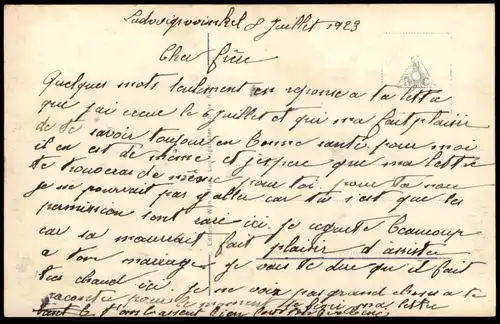 Ludwigwinkel 8 Juillet 1923
Cher frère
Quelques mots seulement en reponse a ta lettre
que j'ai recue le 6 juillet et qui ma fait plaisir
de te savoir toujour en bonne santé. pour moi
il en est de meme et j'espere que ma lettre
te trouveras de même pour toi. pour ta noce
je ne pourrait pas y aller car tu s'est que les
permission sont rare ici. je regrette beaucoup
car sa maurait fait plaisir d'assister
a ton mariage. je vais te dire qu'il fait
tres chaud ici. je ne vois pas grand chose a te
raconter pour le moment je fini ma lettre
en t'embrassent bien